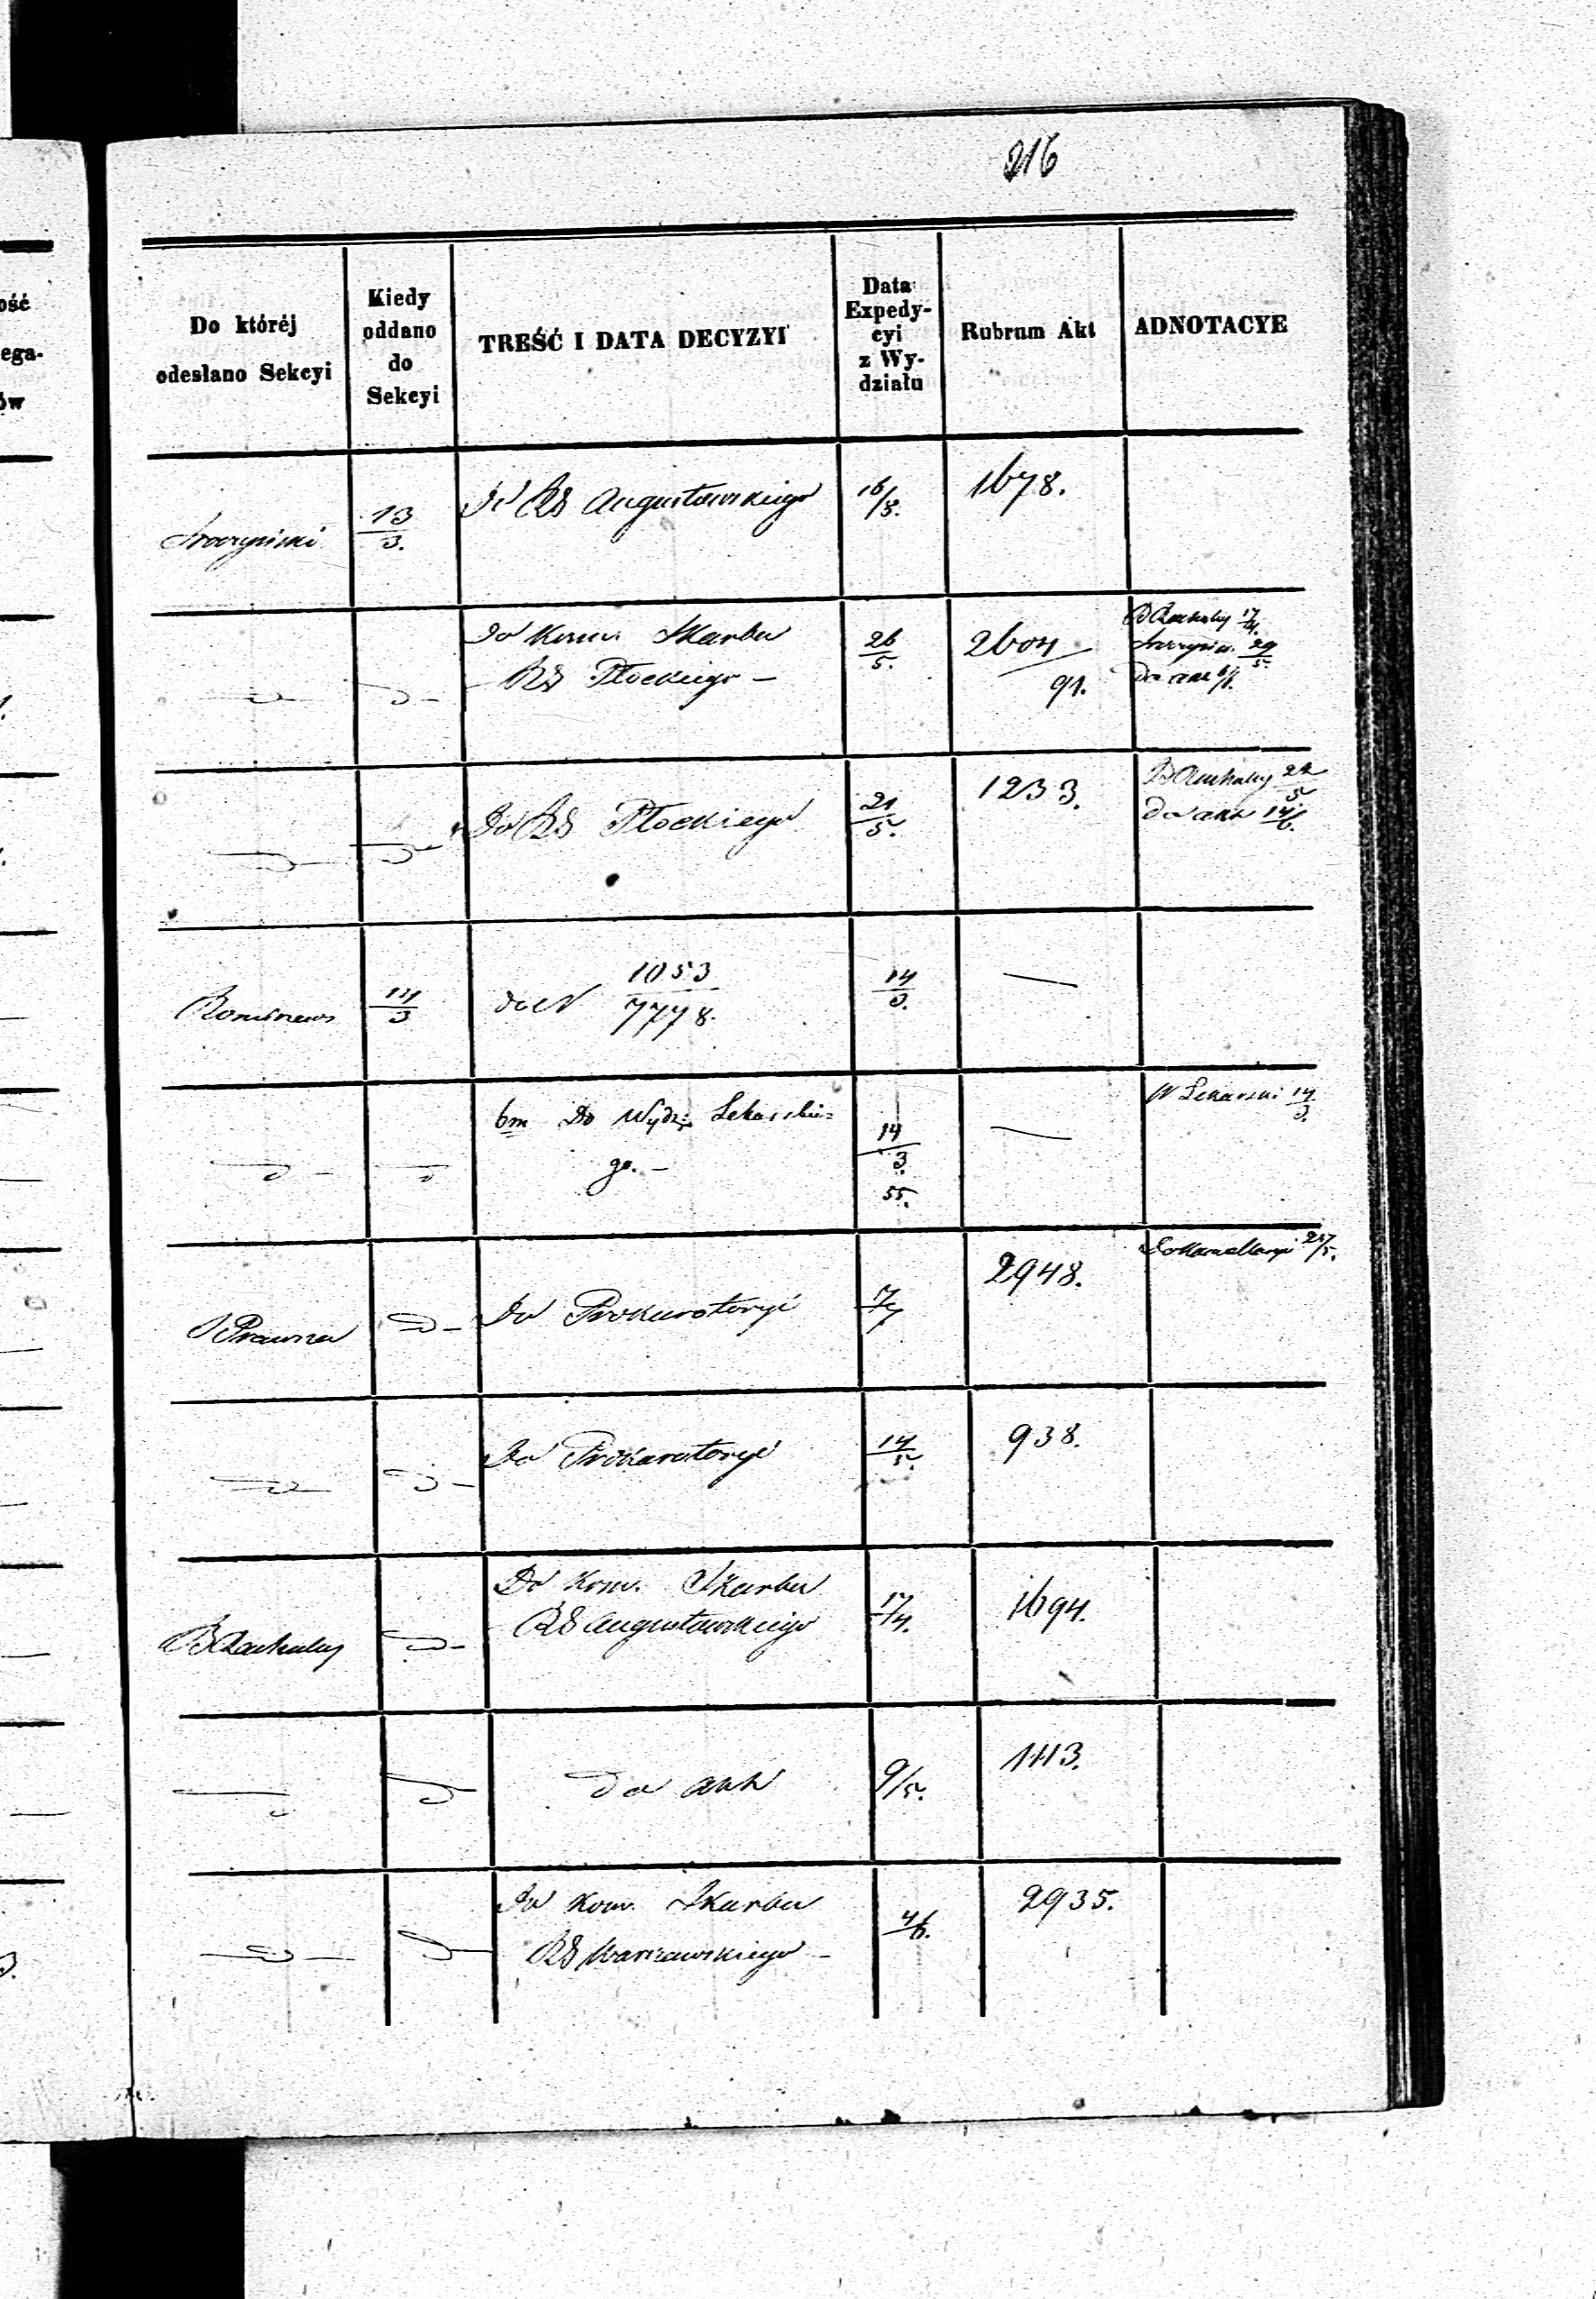 216
ość
ega-
ów
Do któréj
odesłano Sekcyi
Kiedy
oddano
do
Sekcyi
TREŚĆ I DATA DECYZYI
Data
Expedy-
cyi
z Wy-
działu
Rubrum Akt
ADNOTACYE
13/3.
Do RG Augustowskiego
16/5.
1678.
Do Kom. Skarbu
RG Płockiego —
26/5.
2604/91.
17/4.
29/5.
Do akt
Do RG Płockiego
21/5.
1233.
Do akt 14/6.
14/3
do N 1053/7778.
14/3.
—
bm Do Wydz. Lekarskie=
go. —
14/3.
55.
—
W Lekarski 14/3.
Prawna
Do Prokuratoryi
2948.
Do Kancellaryi
Do Prokuratoryi
14/5.
938.
Do Kom. Skarbu
RG Augustowskiego
17/4.
1694.
do akt
9/5.
1113.
Do Kom. Skarbu
RG Warszawskiego —
4/6.
2935.